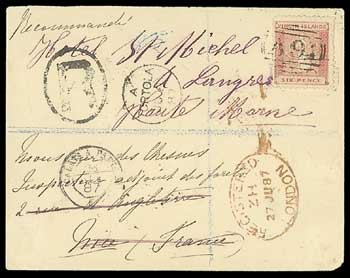 Recommandé
VIRGIN ISLANDS
SIX PENCE
A91
Hotel St Michel
à Langres
Haute Marne
TORTOLA
A
REGISTERED
27 JU 87
LONDON
Inspecteur adjoint des forêts
2 rue d'Angleterre
Nice (France)